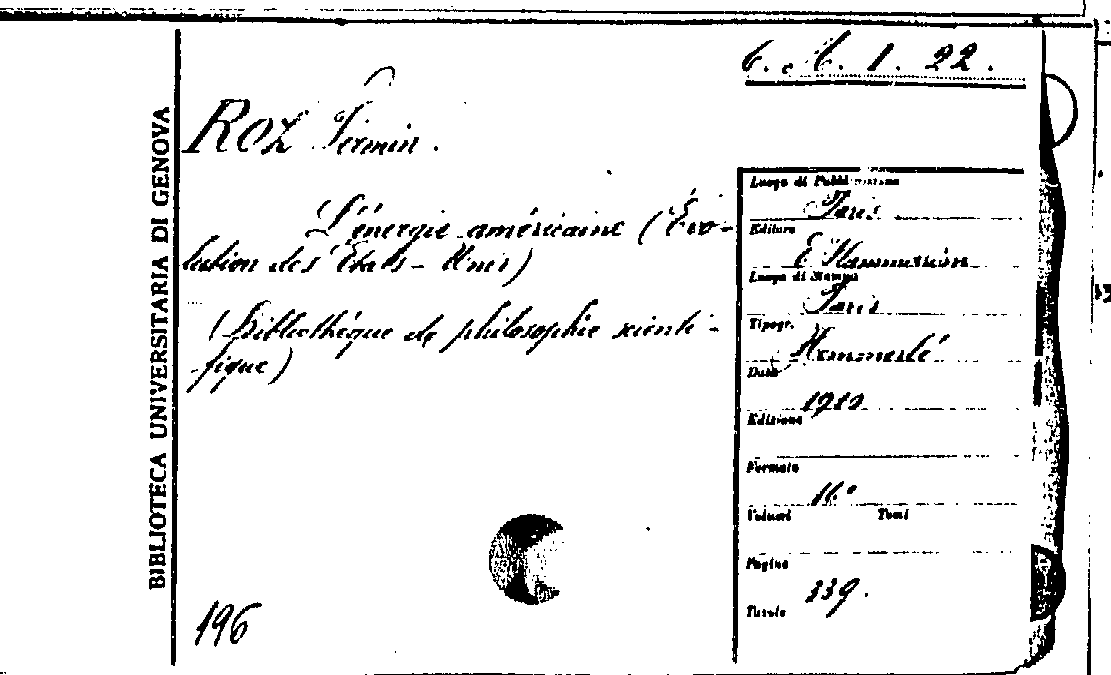 6. A. 1. 22.
BIBLIOTECA UNIVERSITARIA DI GENOVA
Roz Firmin.
L'énergie américaine (Évo-
lution des États-Unis)
(Bibliothèque de philosophie scienti-
fique)
196
Luogo di Pubblicazione
Paris
Editore
E. Flammarion
Luogo di Stampa
Paris
Tipogr.
Hemmerlé
Data
1910
Edizione
Formato
16°
Volumi Tomi
Pagine
339.
Tavole